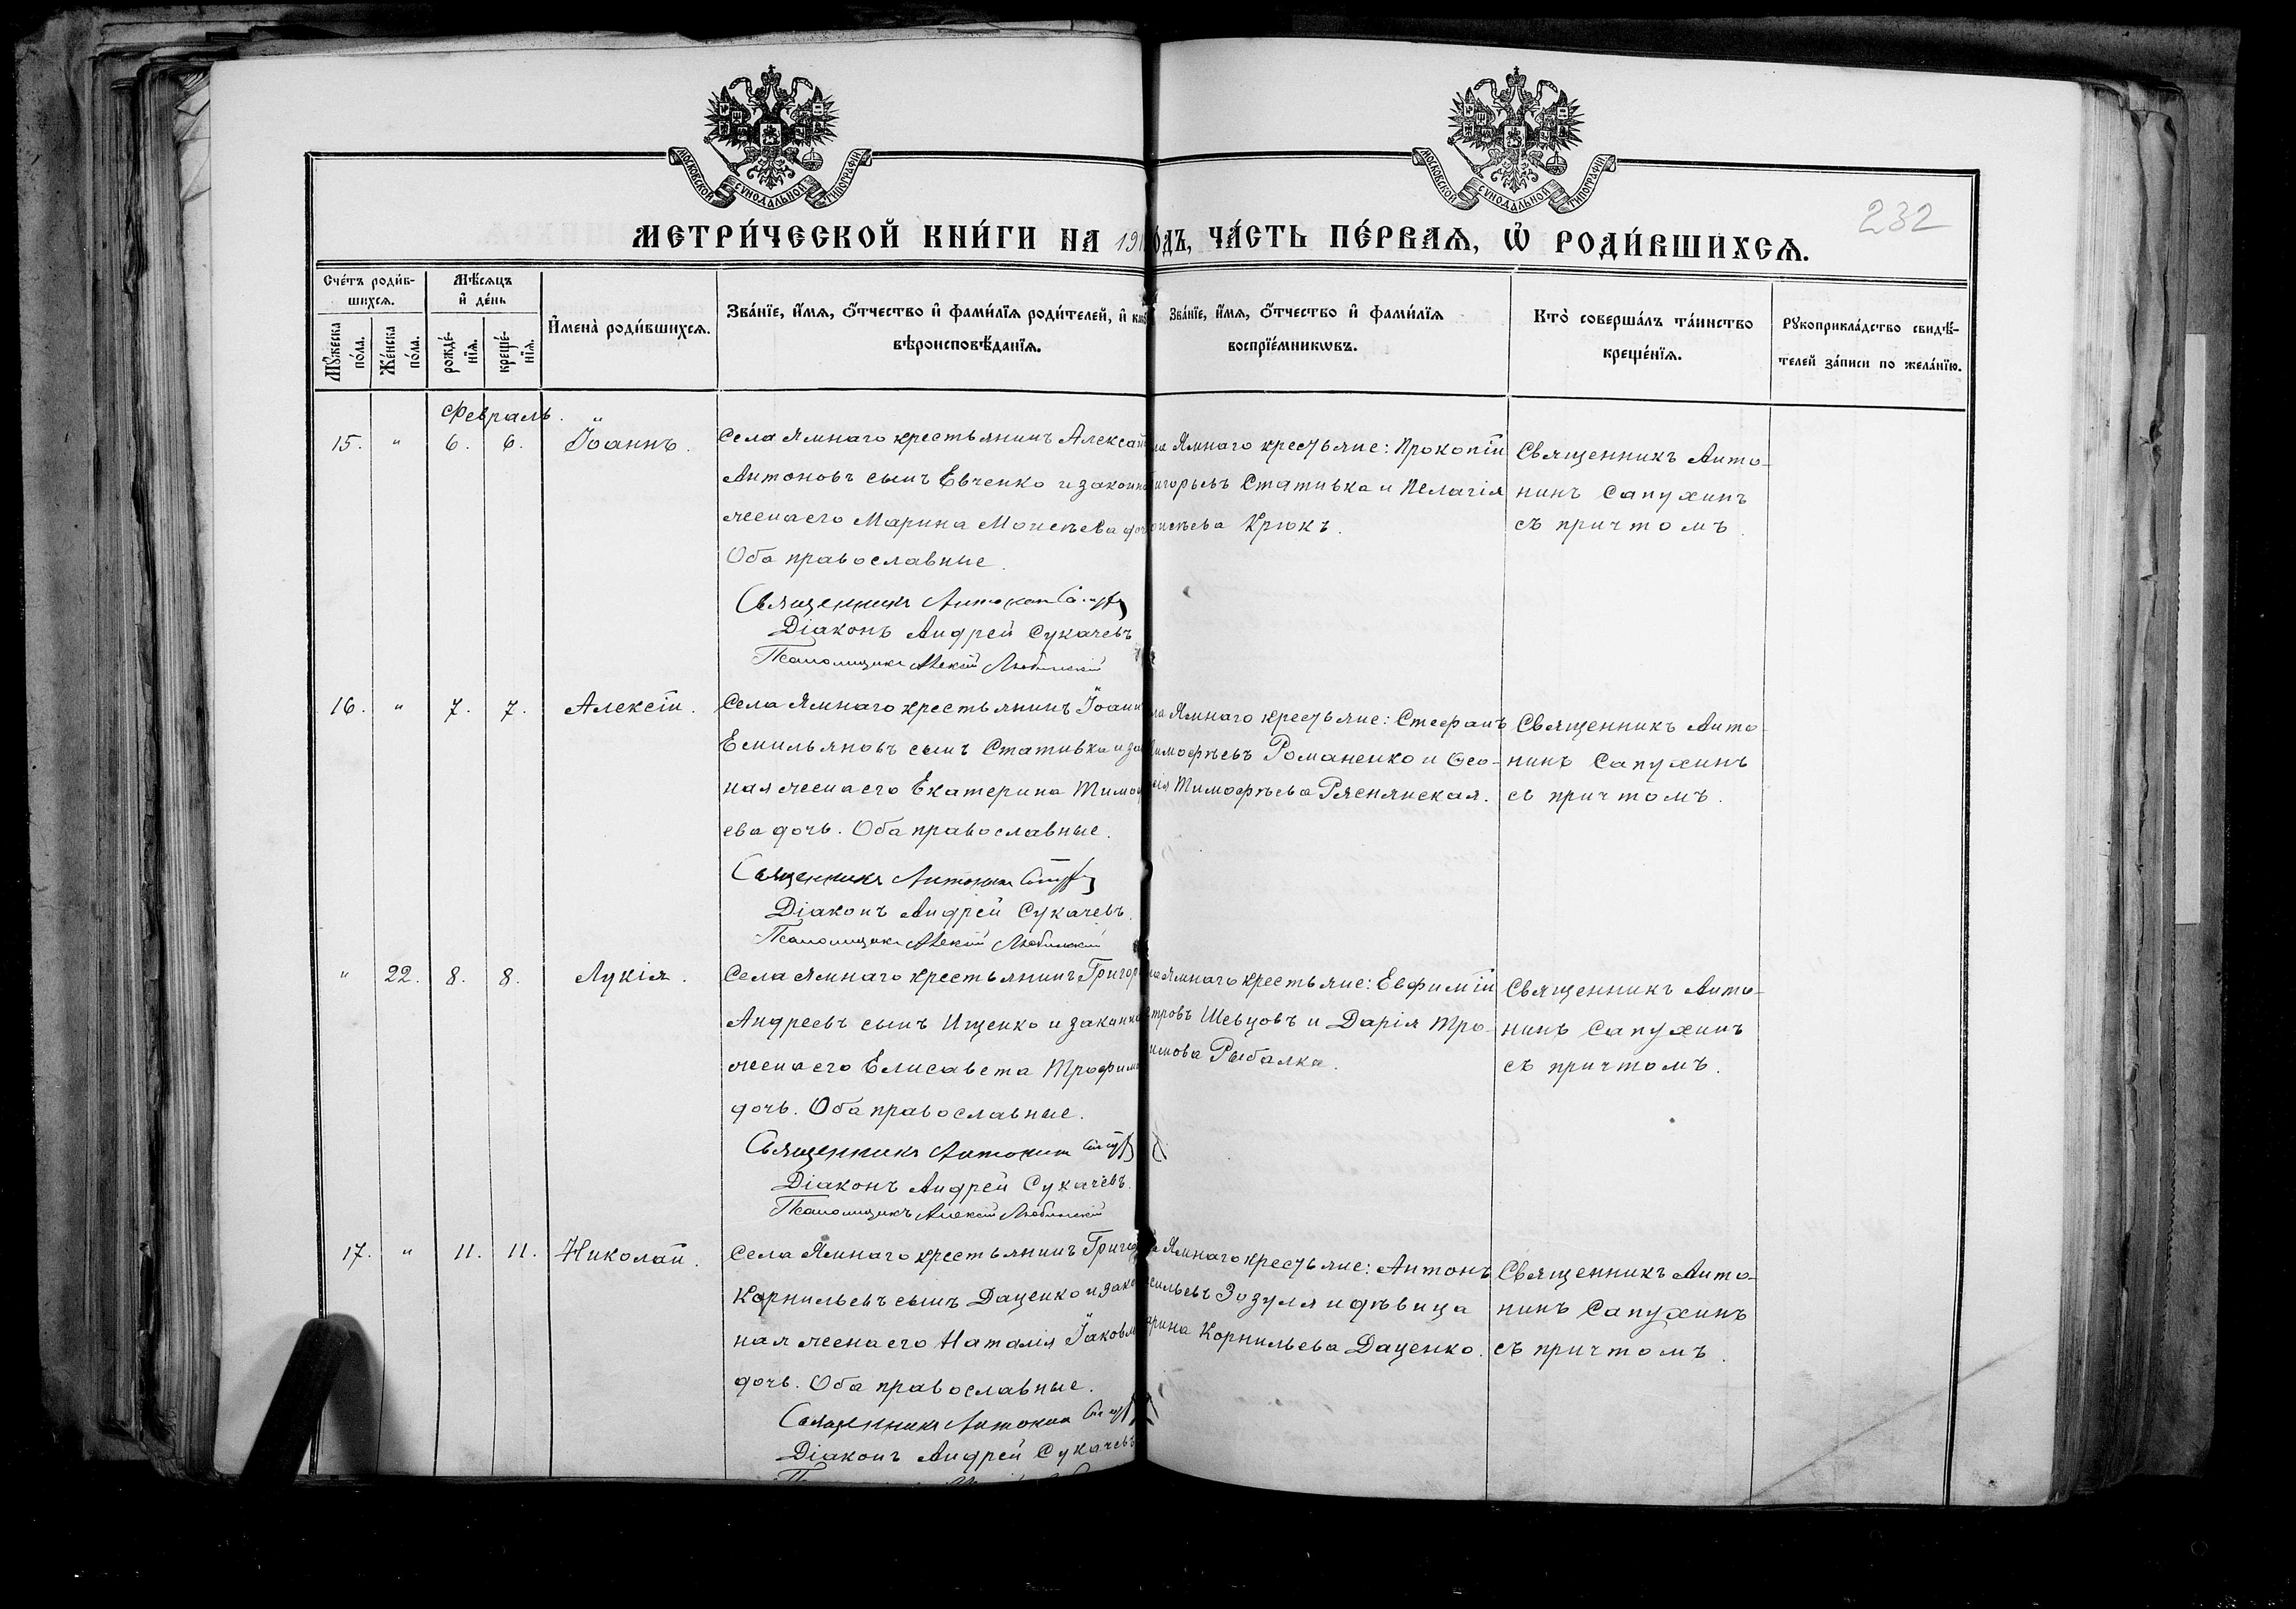 МОСКОВСКОЙ СѴНОДАЛЬНОЙ ТИПОГРАФІИ
МОСКОВСКОЙ СѴНОДАЛЬНОЙ ТИПОГРАФІИ
232
МЕТРИ́ЧЕСКОЙ КНИ́ГИ НА 191
ОДЪ, ЧА́СТЬ ПЕ́РВАѦ, Ѡ҆ РОДИ́ВШИХСѦ.
Сче́тъ роди́в-
шихсѧ.
Мꙋ́жеска по́ла.
Же́нска по́ла.
Мѣ́сѧцъ
и҆ де́нь
рожде́-нїѧ.
креще́-нїѧ.
И҆мена̀ роди́вшихсѧ.
Зва́нїе, и҆́мѧ, ѻ҆́тчество и҆ фами́лїѧ роди́телей, и҆
вѣроисповѣ́данїѧ.
Зва́нїе, и҆́мѧ, ѻ҆́тчество и҆ фами́лїѧ
воспрїе́мникѡвъ.
Кто̀ соверша́лъ та́инство
креще́нїѧ.
Рꙋкоприкла́дство свидѣ́-
телей за́писи по жела́нїю.
Февраль.
15. " 6. 6. Іоаннъ.
Села Ямнаго крестьянинъ Алексѣй
Антоновъ сынъ Евченко и законна
жена его Марина Моисѣева доч
Оба православные.
Священникъ Антонин
Діаконъ Андрей Сукачевъ
Псаломщикъ Алексій Любинскій
ла Ямнаго крестьяне: Прокопій
игорьевъ Стативка и Пелагія
оисѣева Крюкъ.
Священникъ Анто-
нинъ Сапухинъ
съ причтомъ.
16. " 7. 7. Алексій.
Села Ямнаго крестьянинъ Іоанн
Емильяновъ сынъ Стативка и зак
ная жена его Екатерина Тимоф
ева дочь. Оба православные.
Священникъ Антонин
Діаконъ Андрей Сукачевъ.
Псаломщикъ Алексій Любинскій
ла Ямнаго крестьяне: Стефанъ
имофѣевъ Романенко и Ѳео-
сія Тимофѣева Ряснянская.
Священникъ Анто-
нинъ Сапухинъ
съ причтомъ.
" 22. 8. 8. Лукія.
Села Ямнаго крестьянинъ Григор
Андреевъ сынъ Ищенко и законна
жена его Елисавета Трофим
дочь. Оба православные.
Священникъ Антонин
Діаконъ Андрей Сукачевъ.
Псаломщикъ Алексій Любинскій
ла Ямнаго крестьяне: Евфимій
тровъ Шевцовъ и Дарія Тро-
имова Рыбалка.
Священникъ Анто-
нинъ Сапухинъ
съ причтомъ.
17. " 11. 11. Николай.
Села Ямнаго крестьянинъ Григо
Корнильевъ сынъ Даценко и зако
ная жена его Наталія Іаковл
дочь. Оба православные.
Священникъ Антонин
Діаконъ Андрей Сукачевъ
Ямнаго крестьяне: Антонъ
сильевъ Зозуля и дѣвица
арина Корнильева Даценко.
Священникъ Анто-
нинъ Сапухинъ
съ причтомъ.